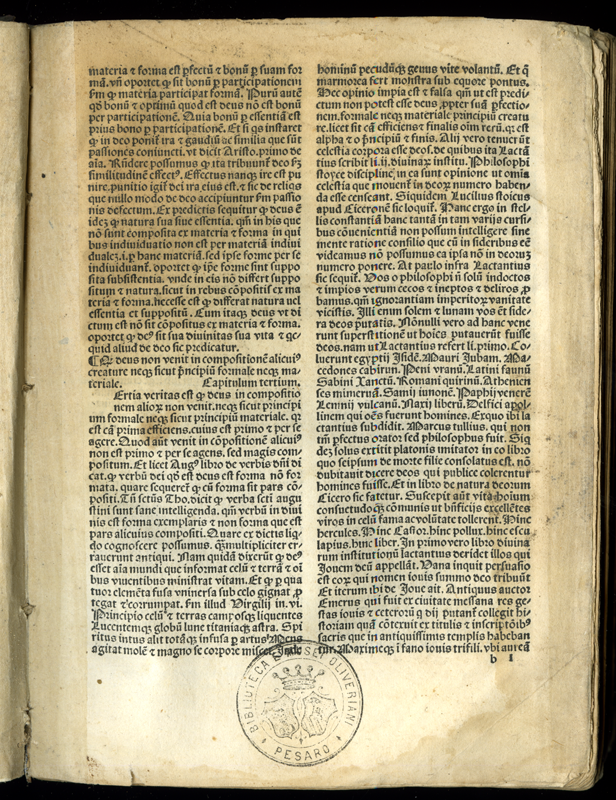 materia & forma est ꝑfectũ & bonũ ꝑ suam for
mã. vñ oportet ꝙ sit bonũ ꝑ participationem
fm ꝙ materia participat formã. Purũ autẽ
qð bonũ & optimũ quod est deus nõ est bonũ
per participationẽ. Quia bonũ ꝑ essentiã est
prius bono ꝑ participationẽ. Et si qs instaret
ꝙ in deo ponit̃ ira & gaudiũ &c similia que sũt
passiones coniuncti. vt dicit Aristo. primo de
aĩa. Rñdere possumus ꝙ ita tribunt̃ deo ẜꝫ
similitudinẽ effectꝰ. Effectus nanqꝫ ire est pu
nire. punitio igit̃ dei ira eius est. & sic de reliqs
que nullo modo de deo accipiunt̃ fm passio
nis defectum. Ex predictis sequit̃ ꝙ deus ẽ
ideꝫ ꝙ natura sua siue essentia. qm̃ in his que
nõ sunt composita ex materia & forma in qui
bus indiuiduatio non est per materiã indiui
dualeꝫ. i. ꝑ hanc materiã. sed ipse forme per se
indiuiduant̃. oportet ꝙ ip̃e forme sint suppo
sita subsistentia. vnde in eis nõ differt suppo
situm & natura. sicut in rebus cõpositis ex ma
teria & forma. necesse est ꝙ differat natura uel
essentia et suppositũ. Cum itaqꝫ deus vt di
ctum est nõ sit cõpositus ex materia & forma.
oportet ꝙ deꝰ sit sua diuinitas sua vita & qe-
quid aliud de deo sic predicatur.
¶ Q deus non venit in compositionẽ alicuiꝰ
creature neqꝫ sicut p̃ncipiũ formale neqꝫ ma-
teriale. Capitulum tertium.
Ertia veritas est ꝙ deus in compositio
nem alioꝝ non venit. neqꝫ sicut principi
um formale neqꝫ sicut principiũ materiale. qꝛ
est cã prima efficiens. cuius est primo & per se
agere. Quod aũt venit in cõpositionẽ alicuiꝰ
non est primo & per se agens. sed magis com-
positum. Et licet Augꝰ libro de verbis dñi di
cat. ꝙ verbũ dei qð est deus est forma nõ for
mata. quare sequeret̃ ꝙ cũ forma sit pars cõ-
positi. Tñ sctũs Tho. dicit ꝙ verba scti augu
stini sunt sane intelligenda. qm̃ verbũ in diui
nis est forma exemplaris & non forma que est
pars alicuius compositi. Quare ex dictis liq̃
do cognoscere possumus. q̃multipliciter er-
rauerint antiqui. Nam quidã dixerũt ꝙ deꝰ
esset aĩa mundi que informat celũ & terrã & oĩ
bus viuentibus ministrat vitam. Et ꝙ ꝑ qua
tuor elemẽta fusa vniuersa sub celo gignat ꝓ
tegat & corumpat. fm illud Virgilij in. vi.
Principio celũ & terras camposqꝫ liquentes
Lucentemqꝫ globũ lune titaniaqꝫ astra. Spi
ritus intus alit totãqꝫ infusa ꝑ artusꝰ Mens
agitat molẽ & magno se corpore miscet. Inde
hominũ pecudũqꝫ genus vite volantũ. Et q̃
marmorea fert monstra sub equore pontus.
Hec opinio impia est & falsa qm̃ ut est predi-
ctum non potest esse deus ꝓpter suã ꝑfectio-
nem. formale neqꝫ materiale principiũ creatu
re. licet sit cã efficiens & finalis oim rerũ. qꝛ est
alpha & o ꝑncipiũ & finis. Alij vero tenuerũt
celestia corpora esse deos. de quibus ita Lactã
tius scribit li. ij. diuinaꝝ institu. Philosophi
stoyce discipline. in ea sunt opinione ut omĩa
celestia que mouent̃ in deoꝝ numero haben-
da esse censeant. Siquidem Lucilius stoicus
apud Ciceronẽ sic loquit̃. Hanc ergo in stel-
lis constantiã hanc tantã in tam varijs cursi-
bus cõuenientiã non possum intelligere sine
mente ratione consilio que cũ in sideribus eẽ
videamus nõ possumus ea ipsa nõ in deorũ
numero ponere. At paulo infra Lactantius
sic sequit̃. Vos o philosophi ñ solũ indoctos
& impios verum cecos & ineptos & deliros ꝓ
bamus. qm̃ ignorantiam imperitoꝝ vanitate
vicistis. Illi enim solem & lunam vos ẽt side-
ra deos putatis. Nõnulli vero ad hanc vene
runt superstitionẽ ut hoĩes putauerĩt fuisse
deos. nam ut Lactantius refert li. primo. Co-
luerunt egyptij Isidẽ. Mauri Iubam. Ma-
cedones cabirun. Peni vranũ. Latini faunũ
Sabini Xanctũ. Romani quirinũ. Athenien
ses mineruã. Samij iunonẽ. Paphij venerẽ
Lemnij vulcanũ. Naxij liberũ. Delfici apol-
linem qui oẽs fuerunt homines. Ex quo ibi la
ctantius subdidit. Marcus tullius. qui non
tm̃ ꝑfectus orator sed philosophus fuit. Siq
deꝫ solus extitit platonis imitator in eo libro
quo seipsum de morte filie consolatus est. nõ
dubitauit dicere deos qui publice colerentur
homines fuisse. Et in libro de natura deorum
Cicero sic fatetur. Suscepit aũt vita hoĩum
consuetudoqꝫ cõmunis ut b̃nficijs excellẽtes
viros in celũ fama ac volũtate tollerent. Hinc
hercules. Hinc Castor. hinc pollux. hinc escu
lapius. hinc liber. In primo vero libro diuina
rum institutionũ lactantius deridet illos qui
Iouem deũ appellãt. Vana inquit persuasio
est eoꝝ qui nomen iouis summo deo tribuũt
Et iterum ibi de Ioue ait. Antiquus auctor
Emerus qui fuit ex ciuitate messana res ge-
stas iouis & ceterorũ q dij putant̃ collegit hi
storiam quã cõtexuit ex titulis & inscriptõibꝰ
sacris que in antiquissimis templis habeban
tur. Maximeqꝫ i fano iouis trifili. vbi aureã
b 1
BIBLIOTECA E MUSEI OLIVERIANI
PESARO